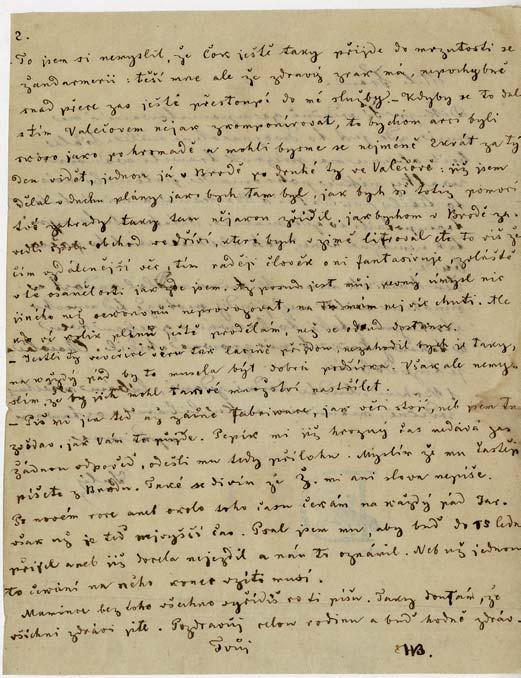 2.
To jsem si nemyslil, že Čok ještě taky přijde do mrzutosti se
žandarmerií: těší mne ale že zdravý zrak má, nepochybně
snad přece zas ještě přestoupí do mé služby. – Kdyby se to dalo
stím Valečovem nějak zkomponírovat, to bychom arci byli
skoro jako pohromadě a mohli bysme se nejméně 2krát za tý
den vidět, jednou já v Brodě po druhé ty ve Valečově: již jsem
dělal v duchu plány jako bych tam byl, jak bych si totiž pomocí
zahrady taky tam nějakou zřídil, jak bychom v Brodě za-
vedli obchod se dřívím, které bych v zimě lifroval etc to víš že
čím vzdálenější věc, tím raději člověk oni fantasíruje, zvláště
v té osamělosti jak zde jsem. Až posud jest můj pevný úmysl nic
jiného než oekonomii neprovozovat, na to mám nejvíc chuti. Ale
ještě prodělám, než se odsud dostanu.
– Jestli už veverice věru tak lacině přijdou, nezahodil bych je taky,
na každý pád by to musela být dobrá podšívka. Však ale nemy-
slím, že by jich mohl takové množství nastřílet.
– Piš mi jen teď až začne fabricírovat, jak věci stojí, neb jsem
zvědav, jak Vám to půjde. Pepík mi již hrozný čas nedává zas
žádnou odpověď, odešli mu tedy přílohu. Myslím že mu častěji
píšete z Brodu. Také se divím že Ž. mi ani slova nepíše.
Po novém roce aneb okolo toho času čekám na každý pád
však už je teď nejvyšší čas. Psal jsem mu, aby buď do 15 ledna
přijel aneb již docela nejezdil a nám to oznámil. Neb už jednou
to čekání na něho konec vzíti musí.
Mamince bez toho všechno vyřídíš co ti píšu. Taky doufám, že
všichni zdrávi jste. Pozdravuj celou rodinu a buď hodně zdráv.
Tvůj
HB.